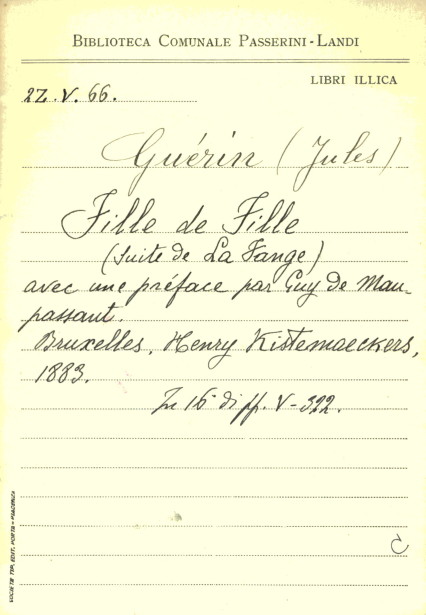 BIBLIOTECA COMUNALE PASSERINI-LANDI
LIBRI ILLICA
2Z.V.66.
Guérin (Jules)
Fille de Fille
(Suite de La Fange)
avec une préface par Guy de Mau-
passant.
Bruxelles, Henry Kistemaeckers,
1883.
In 16° di ff. V-322.
C
SOCIETÀ TIP. EDIT. PORTA - PIACENZA